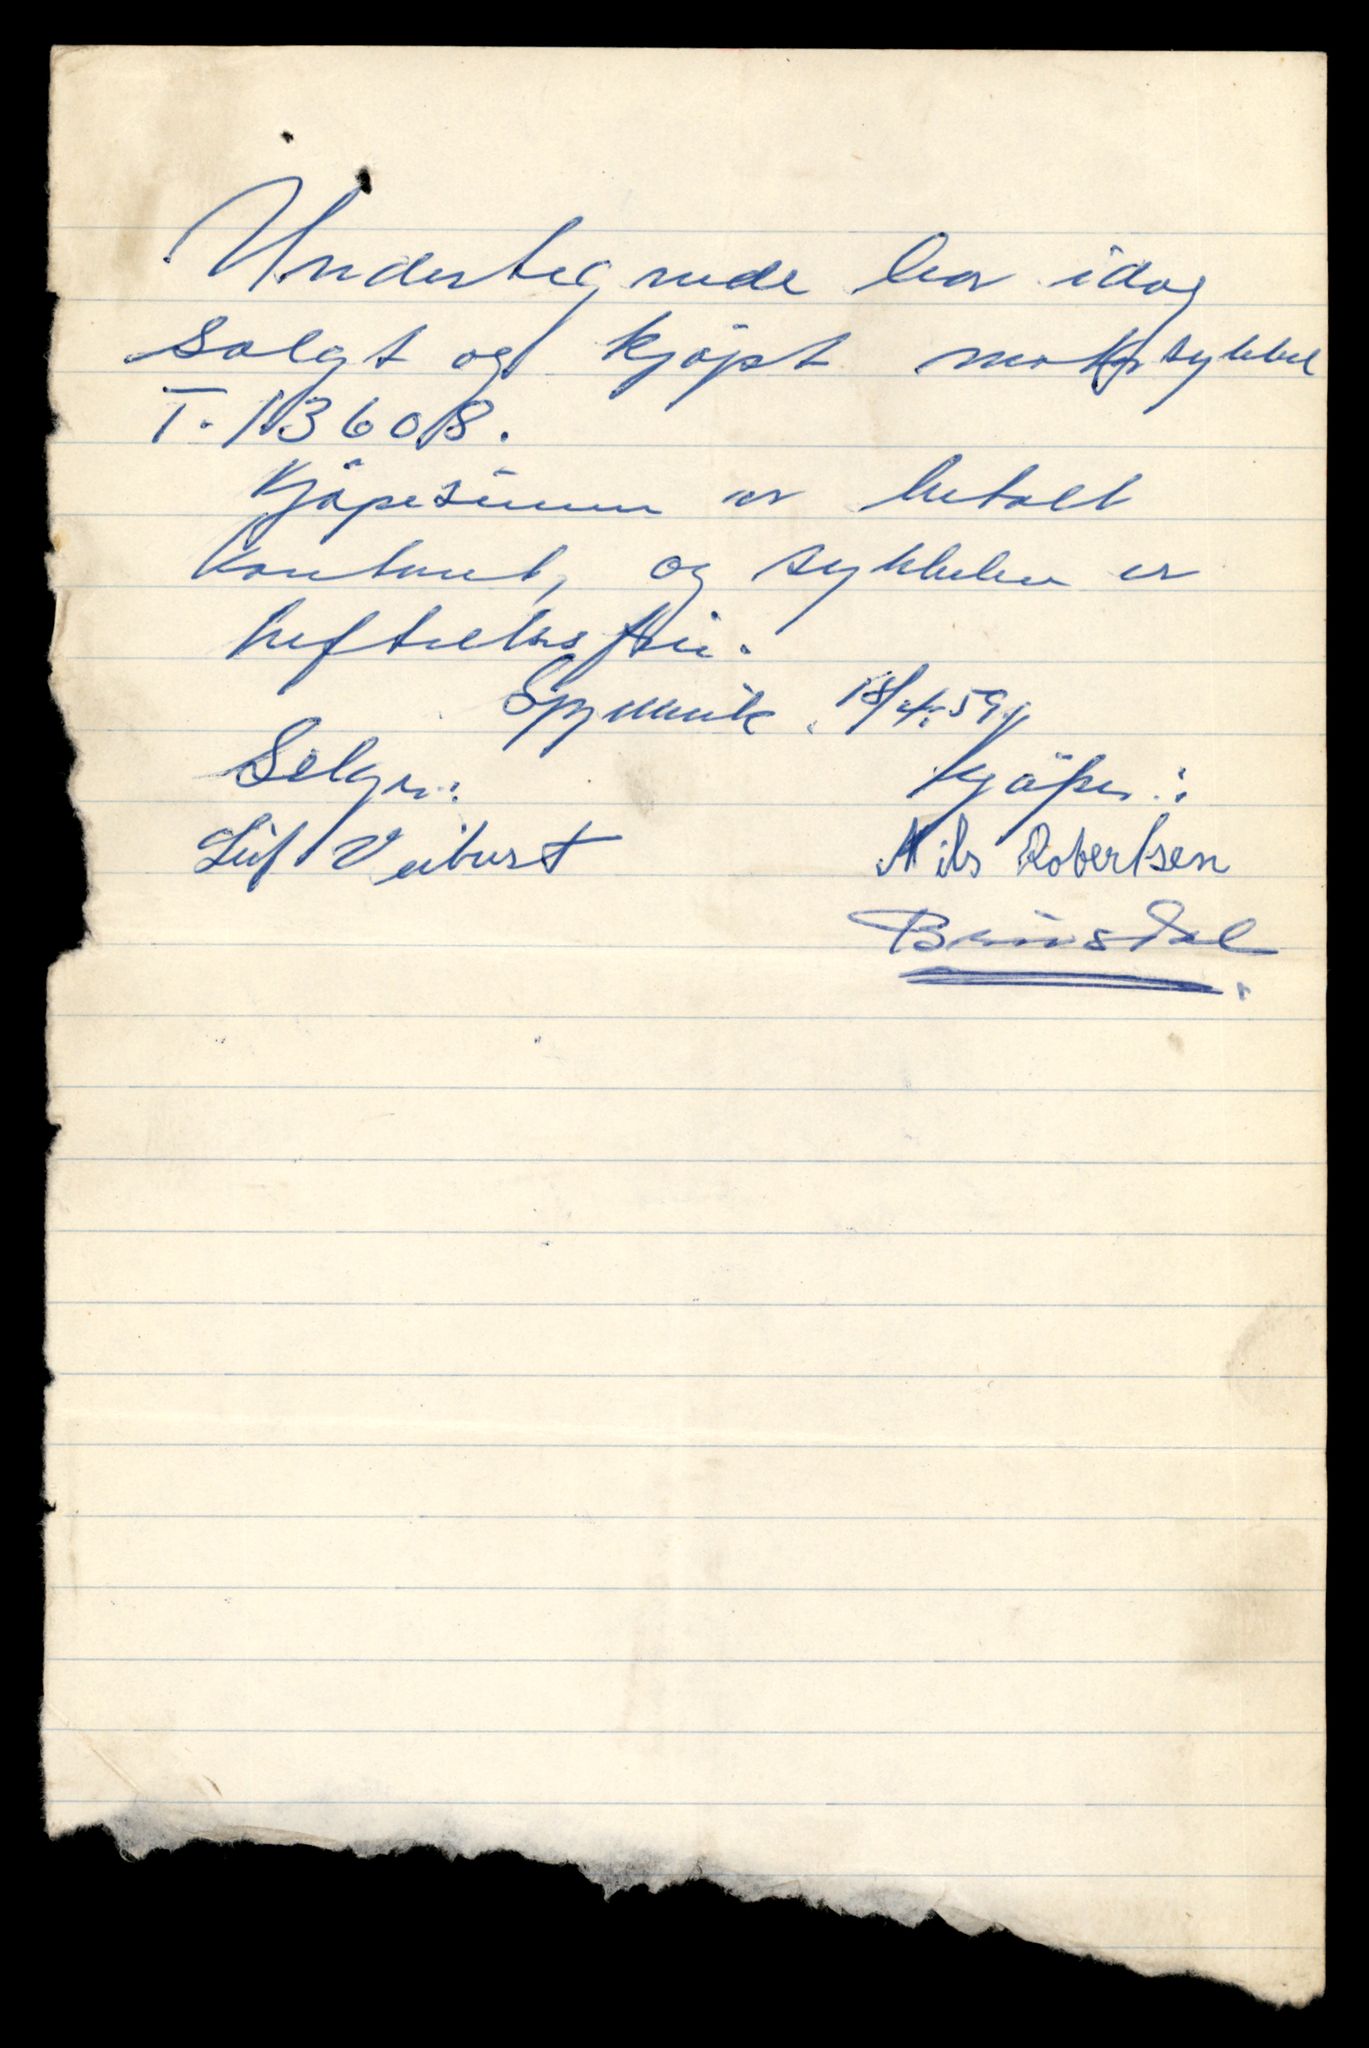 Undertegnede har idag
solgt og kjøpt motorsykkel
T-13608.
Kjøpesummen er betalt
kontant, og sykkelen er
heftelsesfri.
18/4-59
Selger: Kjøper:
Leif Veibust Nils Robertsen
Brunsdal